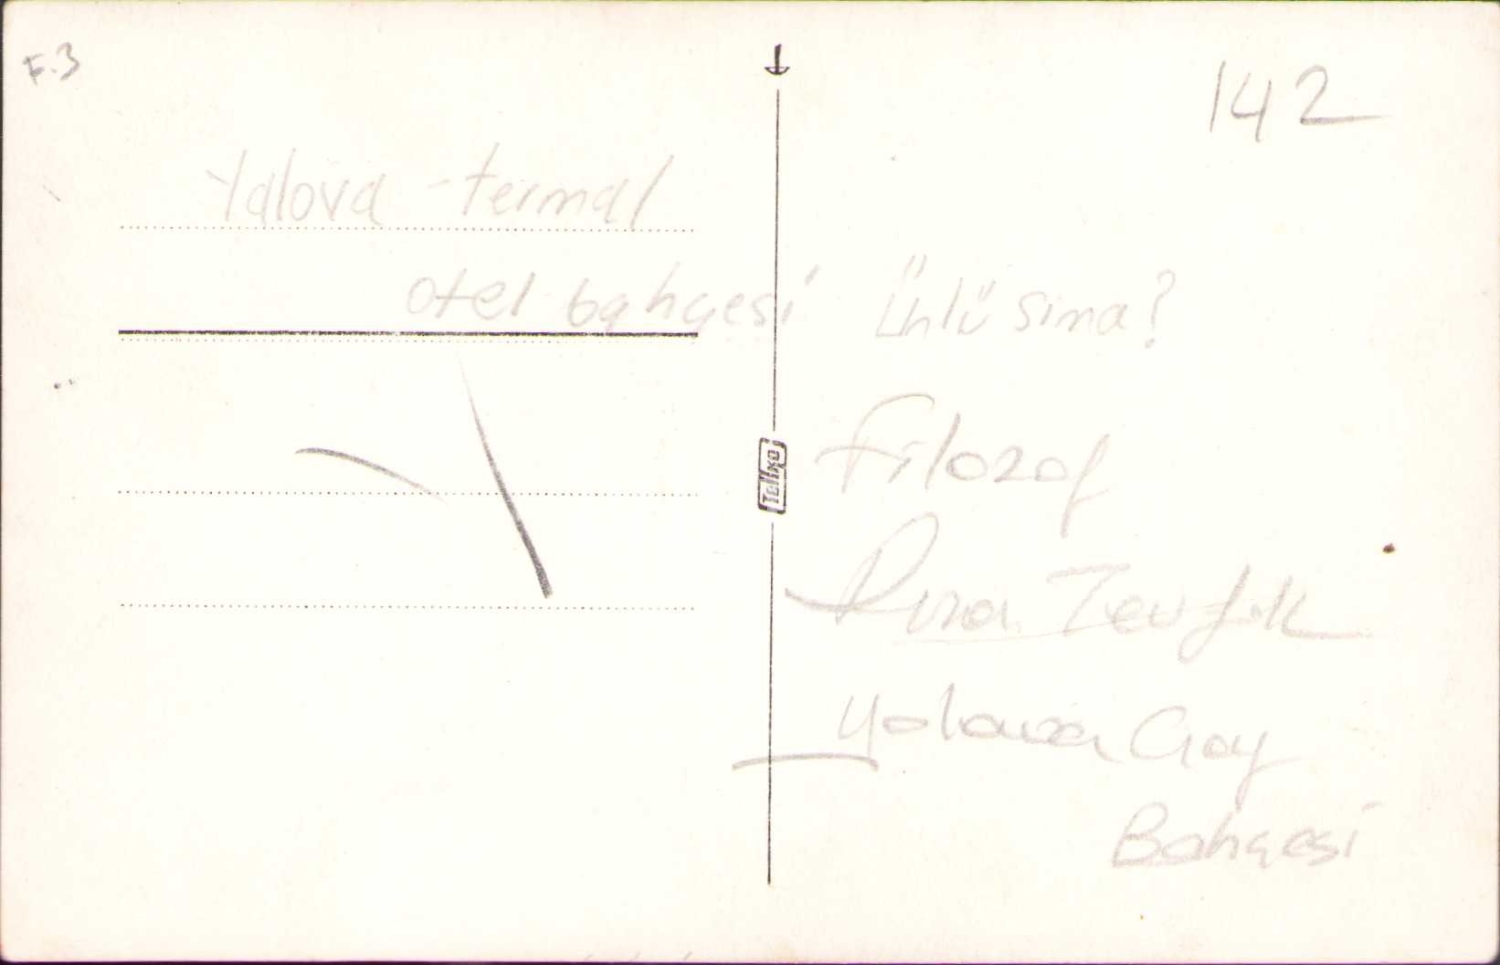 F.3
142
Yalova - termal
otel bahçesi
Ünlü sima?
Filozof
Rıza Tevfik
Yalova Çay
Bahçesi